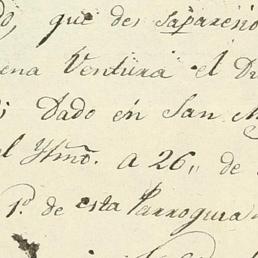 que des aparenò
ena Ventura el D
Dado en San M
el Yttmõ. a 26,, de
1º. de esta Parroquia